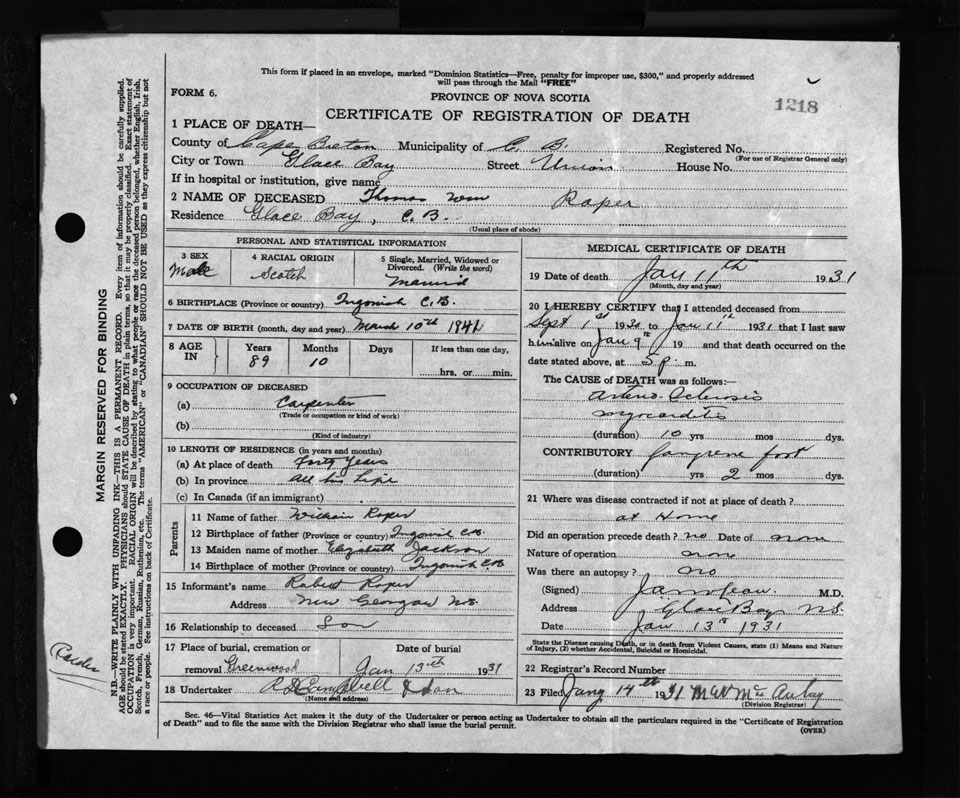 This form if placed in an envelope, marked "Dominion Statistics—Free, penalty for improper use, $300," and properly addressed
will pass through the Mail "FREE"
FORM 6.
PROVINCE OF NOVA SCOTIA
1218
CERTIFICATE OF REGISTRATION OF DEATH
1 PLACE OF DEATH—
County of Cape Breton Municipality of C. B. Registered No.
(For use of Registrar General only)
City or Town Glace Bay Street Union House No.
If in hospital or institution, give name
2 NAME OF DECEASED Thomas Wm Roper
Residence Glace Bay, C. B.
(Usual place of abode)
PERSONAL AND STATISTICAL INFORMATION
3 SEX Male
4 RACIAL ORIGIN Scotch
5 Single, Married, Widowed or Divorced. (Write the word)
Married
6 BIRTHPLACE (Province or country) Ingonish C.B.
7 DATE OF BIRTH (month, day and year) March 10th 1841
8 AGE IN Years 89 Months 10 Days If less than one day, hrs. or min.
9 OCCUPATION OF DECEASED
(a) Carpenter
(Trade or occupation or kind of work)
(b)
(Kind of industry)
10 LENGTH OF RESIDENCE (in years and months)
(a) At place of death Forty Years
(b) In province all his life
(c) In Canada (if an immigrant)
Parents
11 Name of father William Roper
12 Birthplace of father (Province or country) Ingonish C.B.
13 Maiden name of mother Elizabeth Jackson
14 Birthplace of mother (Province or country) Ingonish C.B.
15 Informant's name Robert Roper
Address New Glasgow N.S.
16 Relationship to deceased Son
17 Place of burial, cremation or removal Greenwood
Date of burial Jan 13th 1931
18 Undertaker Campbell & Son
(Name and address)
MEDICAL CERTIFICATE OF DEATH
19 Date of death Jan 11th 1931
(Month, day and year)
20 I HEREBY CERTIFY that I attended deceased from
Sept 1st 1930 to Jan 11th 1931 that I last saw
him alive on Jan 9th 19 and that death occurred on the
date stated above, at 5 p. m.
The CAUSE of DEATH was as follows:—
Arterio Sclerosis
Myocarditis
(duration) 10 yrs mos dys.
CONTRIBUTORY Gangrene foot
(duration) yrs 2 mos dys.
21 Where was disease contracted if not at place of death?
at Home
Did an operation precede death? no Date of none
Nature of operation none
Was there an autopsy? no
(Signed) M.D.
Address Glace Bay N.S.
Date Jan 13th 1931
State the Disease causing Death, or in death from Violent Causes, state (1) Means and Nature
of Injury, (2) whether Accidental, Suicidal or Homicidal.
22 Registrar's Record Number
23 Filed Jany 14th 1931 McAulay
(Division Registrar)
Sec. 46—Vital Statistics Act makes it the duty of the Undertaker or person acting as Undertaker to obtain all the particulars required in the "Certificate of Registration
of Death" and to file the same with the Division Registrar who shall issue the burial permit.
(OVER)
MARGIN RESERVED FOR BINDING
N.B.—WRITE PLAINLY WITH UNFADING INK—THIS IS A PERMANENT RECORD. Every item of information should be carefully supplied.
AGE should be stated EXACTLY. PHYSICIANS should STATE CAUSE OF DEATH in plain terms, so that it may be properly classified. Exact statement of
OCCUPATION is very important. RACIAL ORIGIN will be described by stating to what people or race the deceased person belonged, whether English, Irish,
Scotch, French, German, Russian, Ruthenian, etc. The terms "AMERICAN" or "CANADIAN" SHOULD NOT BE USED as they express citizenship but not
a race or people. See instructions on back of Certificate.